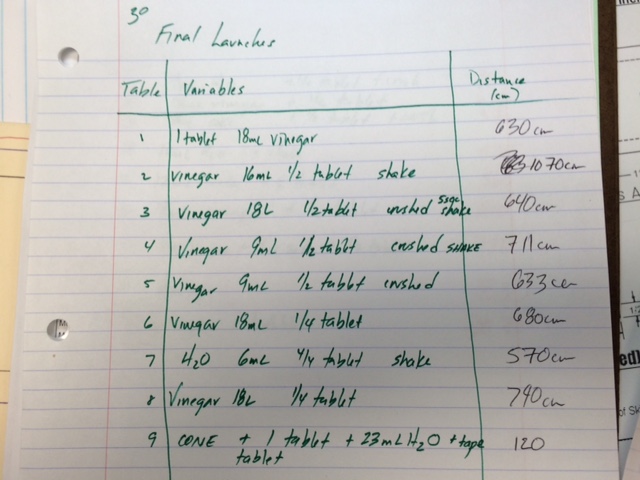 30
Final Launches
Table Variables Distance (cm)
1 1 tablet 18mL vinegar 630cm
2 vinegar 16mL 1/2 tablet shake 1070cm
3 vinegar 18L 1/2 tablet crushed 5sec shake 640cm
4 Vinegar 9mL 1/2 tablet crushed SHAKE 711cm
5 Vinegar 9mL 1/2 tablet crushed 633cm
6 Vinegar 18mL 1/4 tablet 680cm
7 H2O 6mL 4/4 tablet shake 570cm
8 Vinegar 18L 1/4 tablet 740cm
9 CONE + 1 tablet + 23mL H2O + tape 120
tablet